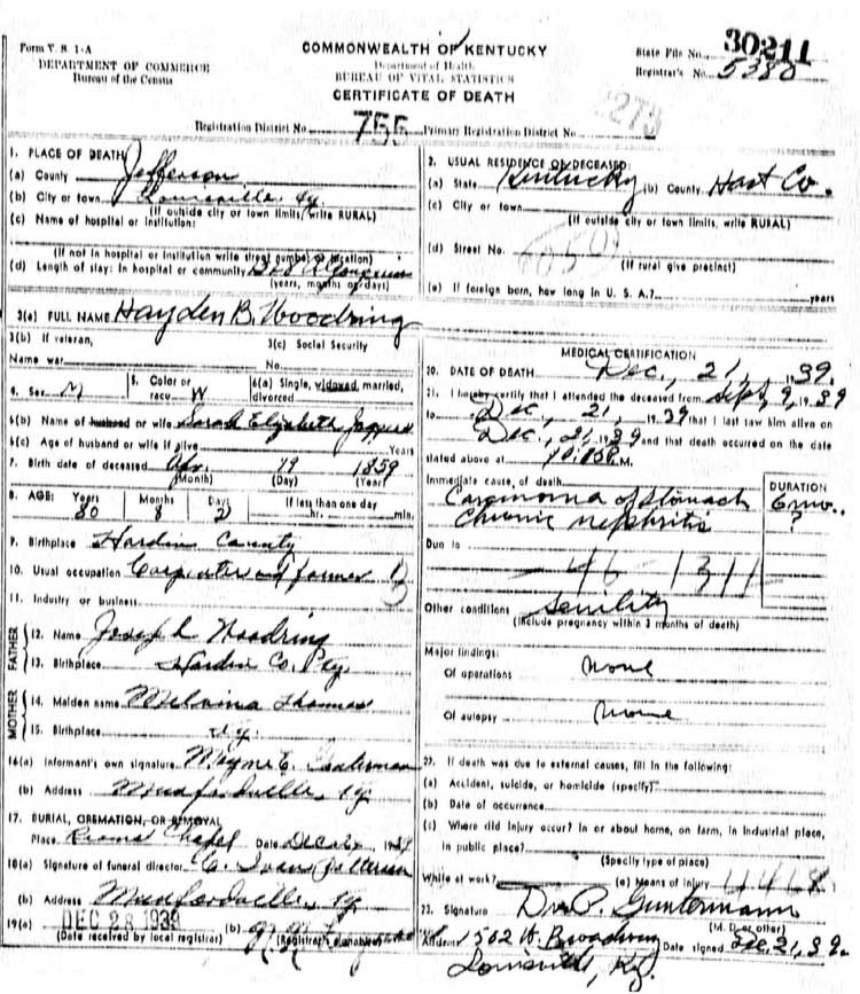 Form V. S. 1-A
DEPARTMENT OF COMMERCE
Bureau of the Census
COMMONWEALTH OF KENTUCKY
Department of Health
BUREAU OF VITAL STATISTICS
CERTIFICATE OF DEATH
State File No. 30211
Registrar's No. 5380
Registration District No. 755 Primary Registration District No.
1. PLACE OF DEATH
(a) County Jefferson
(b) City or town Louisville, Ky.
(If outside city or town limits, write RURAL)
(c) Name of hospital or institution:
(If not in hospital or institution write street number or location)
(d) Length of stay: In hospital or community
(years, months or days)
2. USUAL RESIDENCE OF DECEASED:
(a) State Kentucky (b) County Hart Co.
(c) City or town
(If outside city or town limits, write RURAL)
(d) Street No.
(If rural give precinct)
(e) If foreign born, how long in U. S. A.? years
3(a) FULL NAME Hayden B. Woodring
3(b) If veteran,
Name war
3(c) Social Security
No.
4. Sex M
5. Color or race W
6(a) Single, widowed, married, divorced
6(b) Name of husband or wife Sarah Elizabeth Jaggers
6(c) Age of husband or wife if alive Years
7. Birth date of deceased Apr. 19 1859
(Month) (Day) (Year)
8. AGE: Years 80 Months 8 Days 2 If less than one day hr. min.
9. Birthplace Hardin County
10. Usual occupation Carpenter and farmer
11. Industry or business
FATHER
12. Name Joseph Woodring
13. Birthplace Hardin Co. Ky.
MOTHER
14. Maiden name Melvina Thomas
15. Birthplace Ky.
16(a) Informant's own signature Mayme E.
(b) Address Munfordville, Ky.
17. BURIAL, CREMATION, OR REMOVAL
Place Chapel Date Dec 1939
18(a) Signature of funeral director
(b) Address Munfordville, Ky.
19(a) DEC 28 1939 (b)
(Date received by local registrar) (Registrar's signature)
MEDICAL CERTIFICATION
20. DATE OF DEATH Dec., 21, 1939.
21. I hereby certify that I attended the deceased from Sept. 9, 1939
to Dec., 21, 1939 that I last saw him alive on
Dec., 21, 1939 and that death occurred on the date
stated above at M.
Immediate cause of death
Carcinoma of stomach
Chronic nephritis
DURATION
6 mo..
?
Due to
46 1311
Other conditions Senility
(Include pregnancy within 3 months of death)
Major findings:
Of operations None
Of autopsy None
22. If death was due to external causes, fill in the following:
(a) Accident, suicide, or homicide (specify)
(b) Date of occurrence
(c) Where did injury occur? In or about home, on farm, in industrial place,
in public place?
(Specify type of place)
While at work? (e) Means of injury
23. Signature Dr. P. Guntermann
(M. D. or other)
Address 1562 W. Broadway Date signed Dec. 21, 39.
Louisville, Ky.